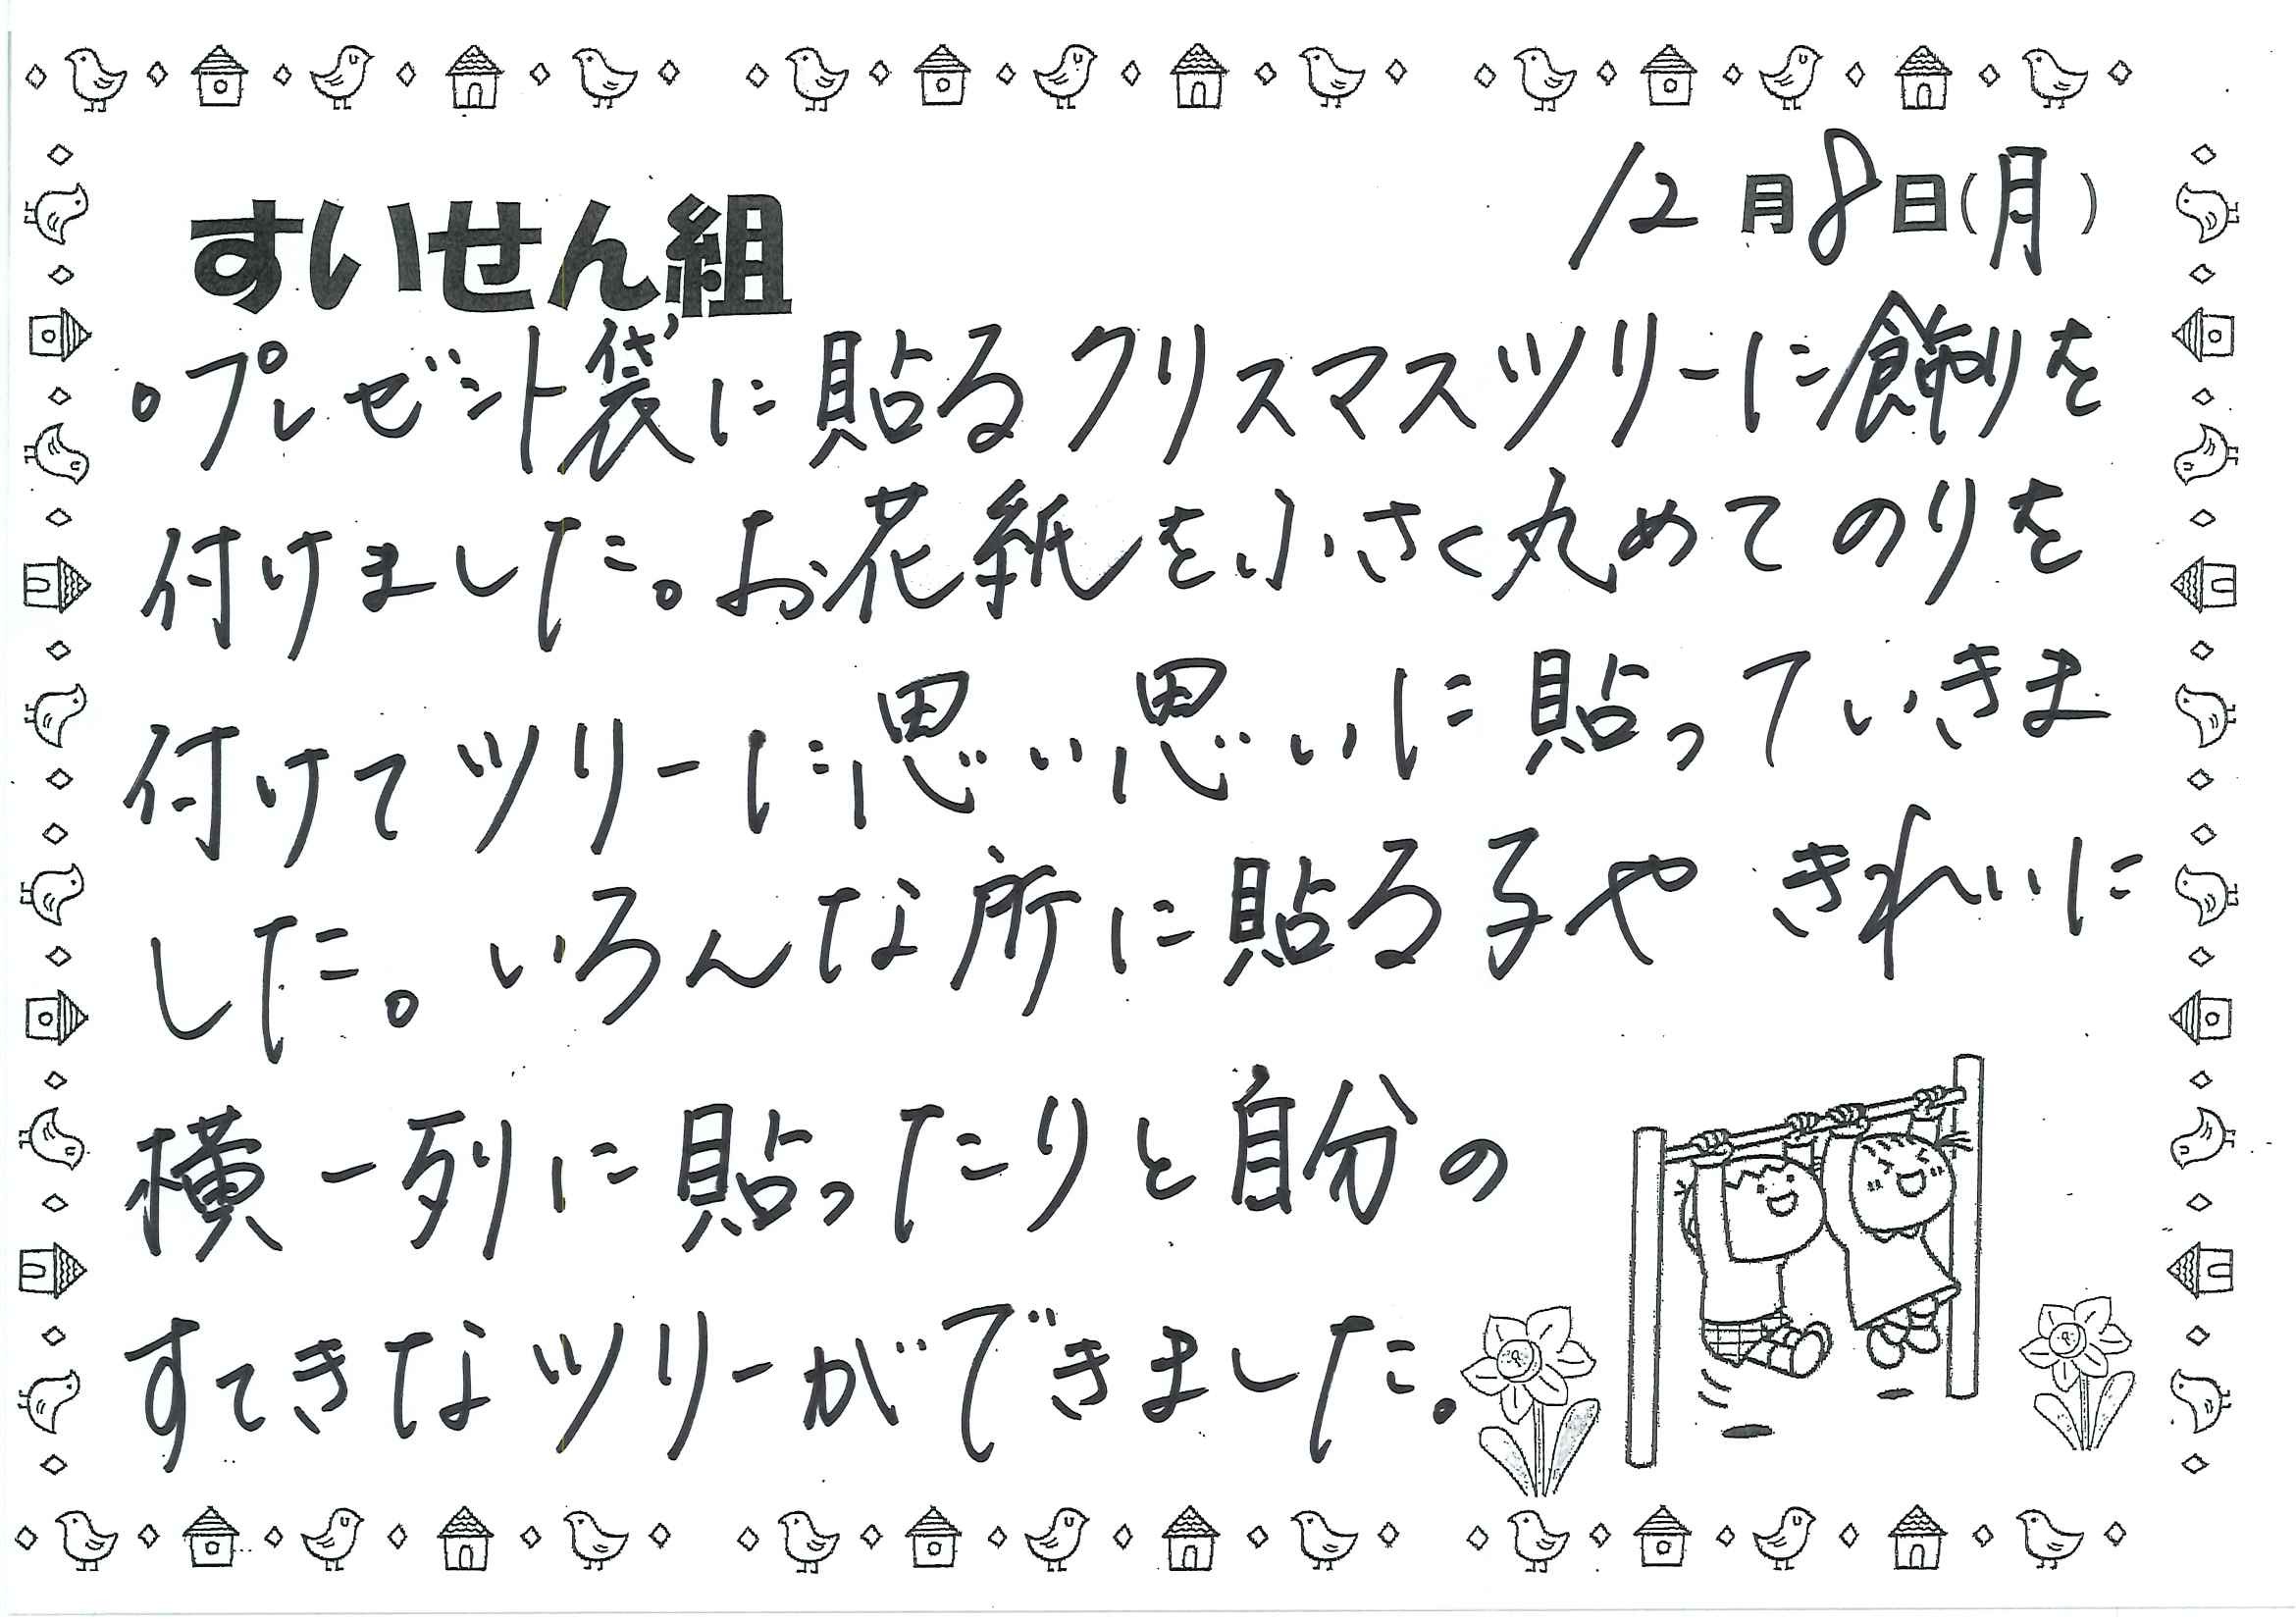 12月8日(月)
すいせん組
。プレゼント袋に貼るクリスマスツリーに飾りを
付けました。お花紙を小さく丸めてのりを
付けてツリーに思い思いに貼っていきま
した。いろんな所に貼る子やきれいに
横一列に貼ったりと自分の
すてきなツリーができました。